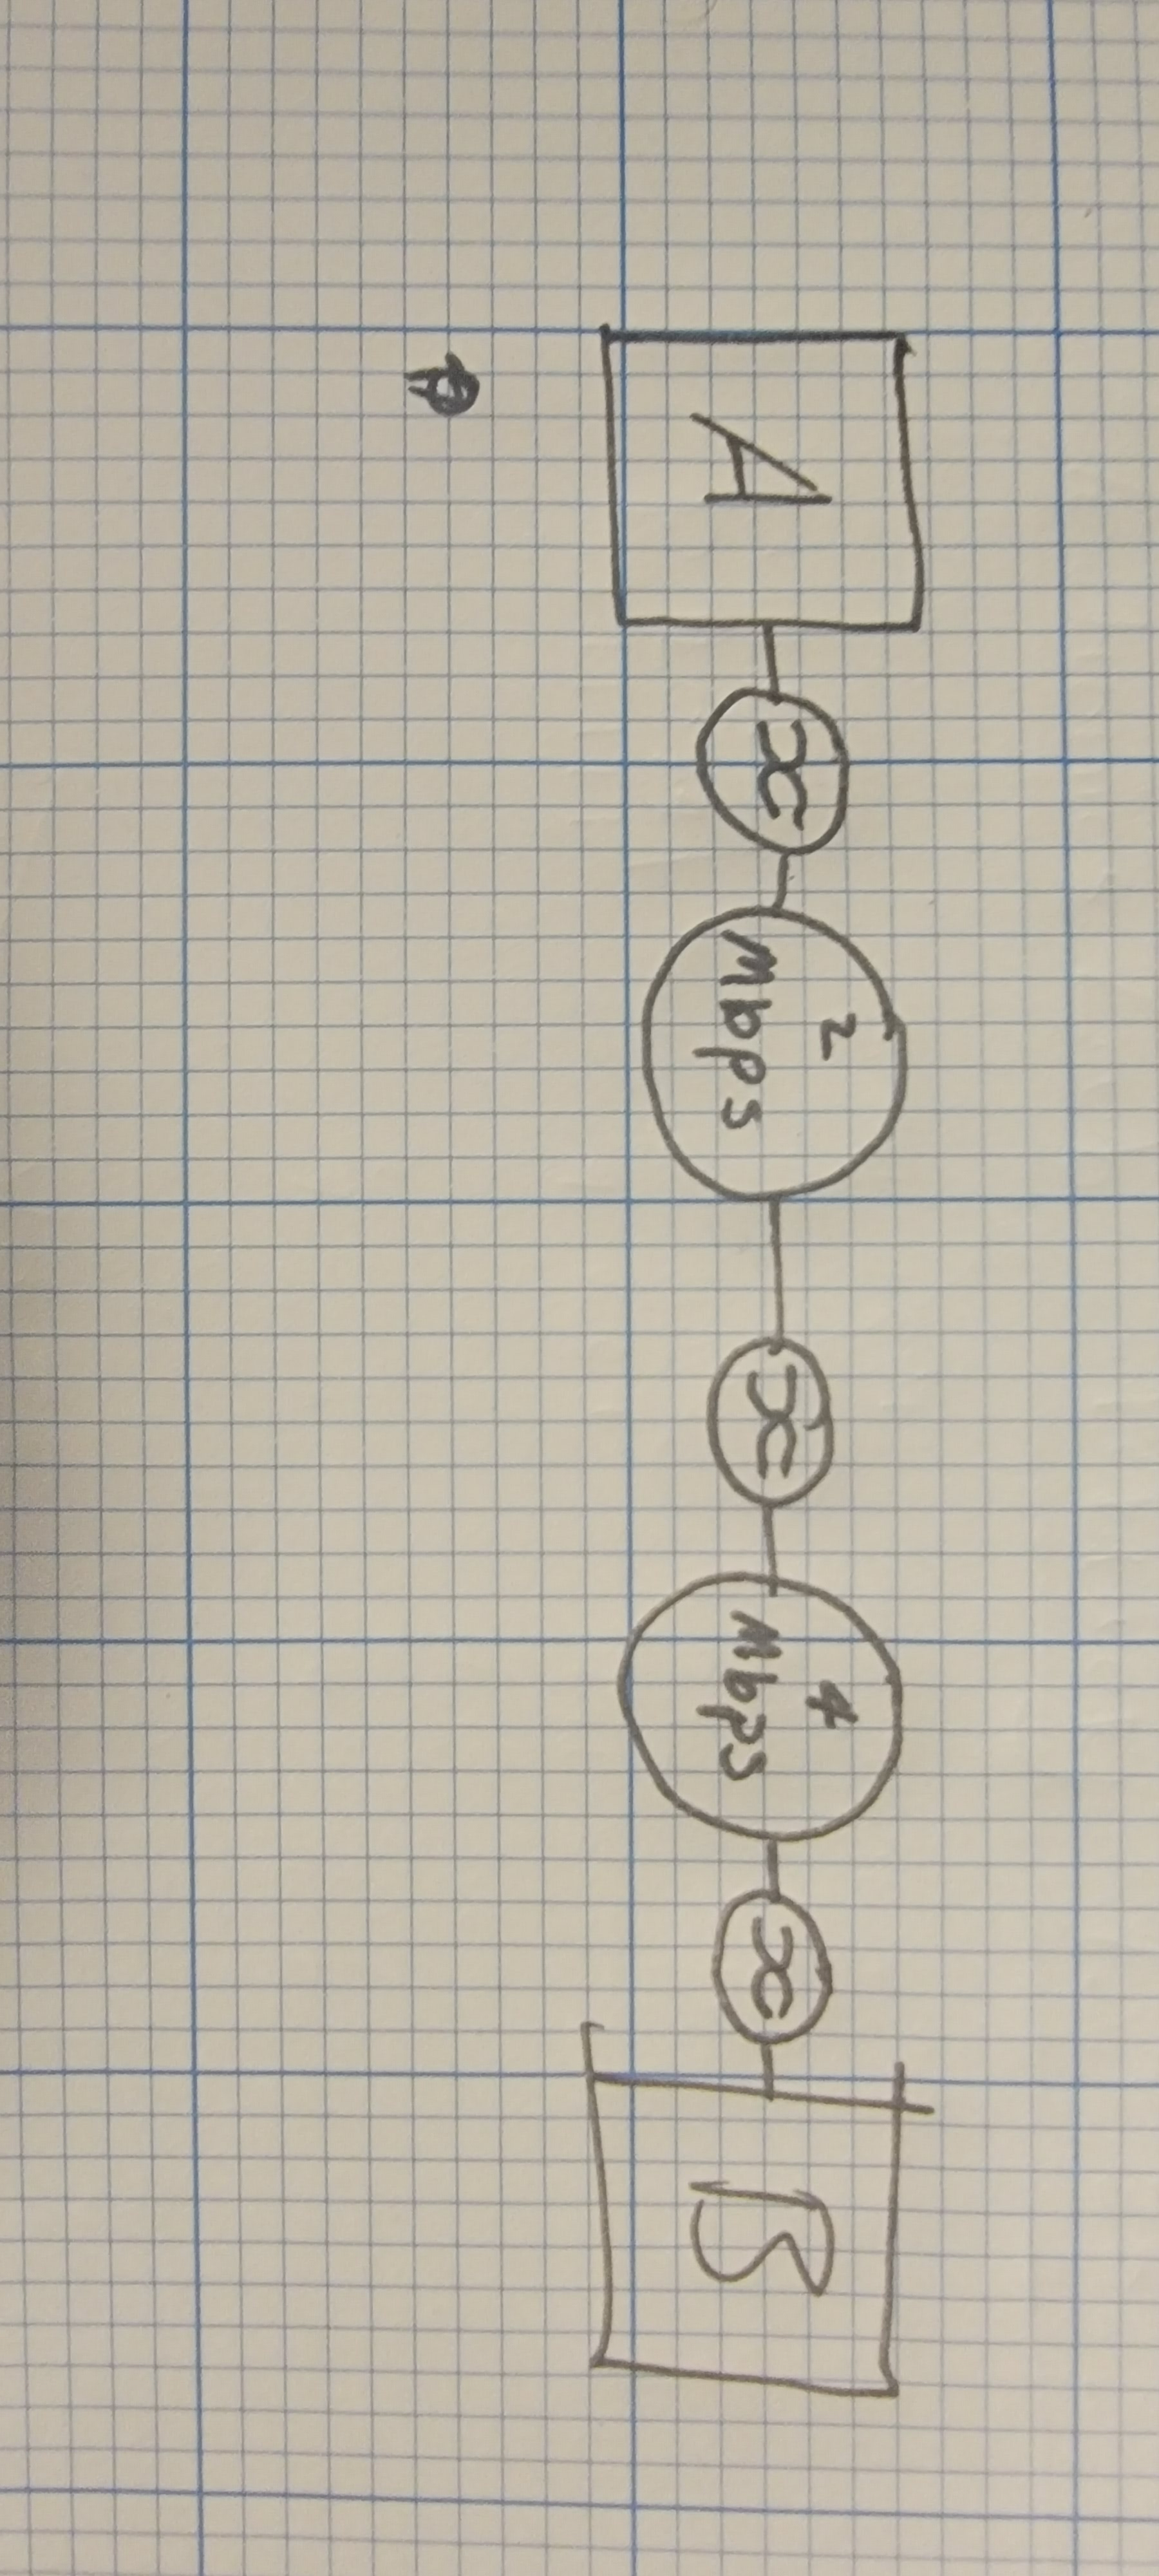 A
x
2
Mbps
x
4
Mbps
x
B